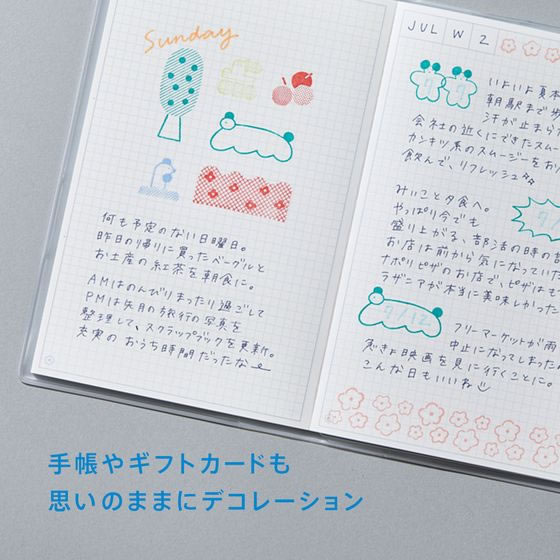 Sunday
何も予定のない日曜日。
昨日の帰りに買ったベーグルと
お土産の紅茶を朝食に。
AMはのんびりまったり過ごして
PMは先月の旅行の写真を
整理して、スクラップブックを更新。
充実の おうち時間だったな
JUL W 2
いよいよ真本
朝駅まで歩
汗が止まら
会社の近くにできたスムー
カンキツ系のスムージーをお
飲んで、リフレッシュ
みいこと夕食へ。
やっぱり今でも
盛り上がる、部活の時の話
お店は前から気になっていた
ナポリピザのお店で、ピザはも
ラザニアが本当に美味しかった
7/12
フリーマーケットが雨
中止になってしまったの
急きょ映画を見に行くことに。
こんな日もいいね
手帳やギフトカードも
思いのままにデコレーション